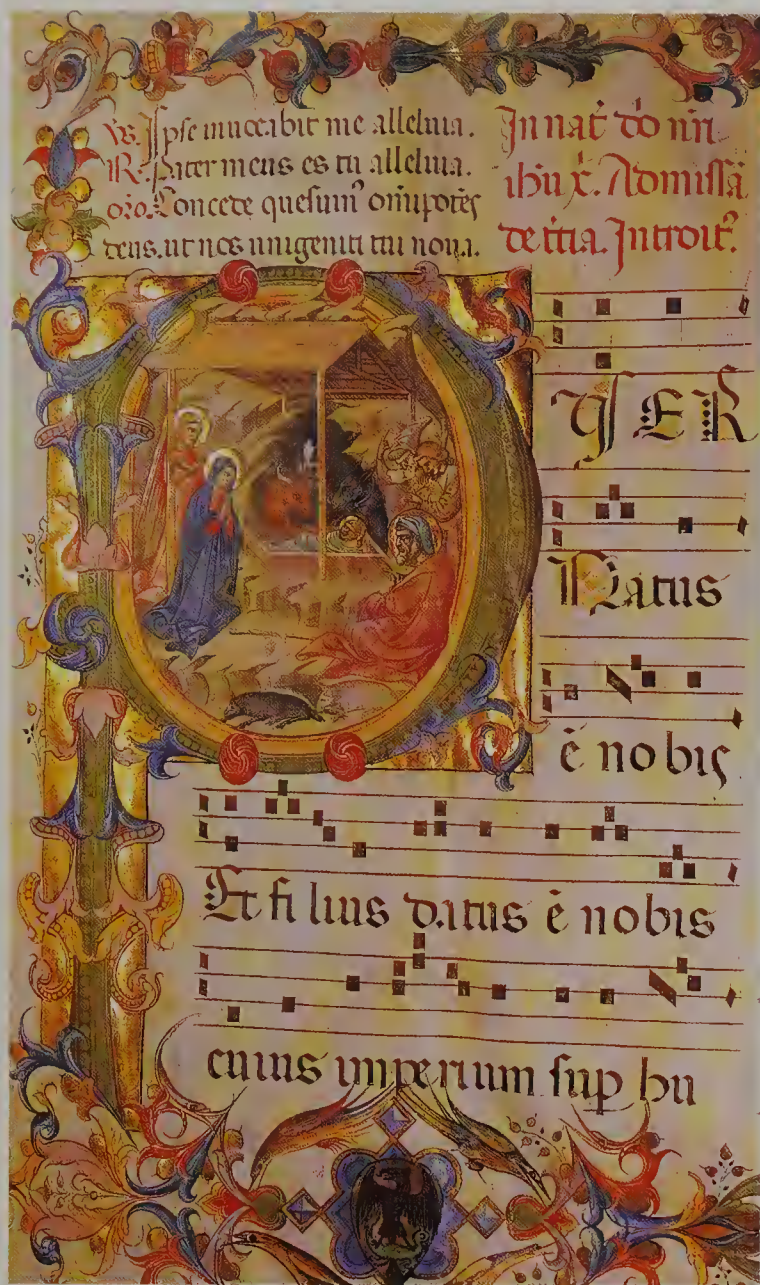 Vs. Ipse invocabit me alleluia.
R. Pater meus es tu alleluia.
oro. Concede quesumˀ om̄ipotēs
deus. ut nos unigeniti tui nova.
In nat̄ do nr̄i
ihū x. Ad missā
de t̄tia. Introitˀ.
P
UER
Natus
ē nobis
Et fi lius datus ē nobis
cuius imperium sup hu